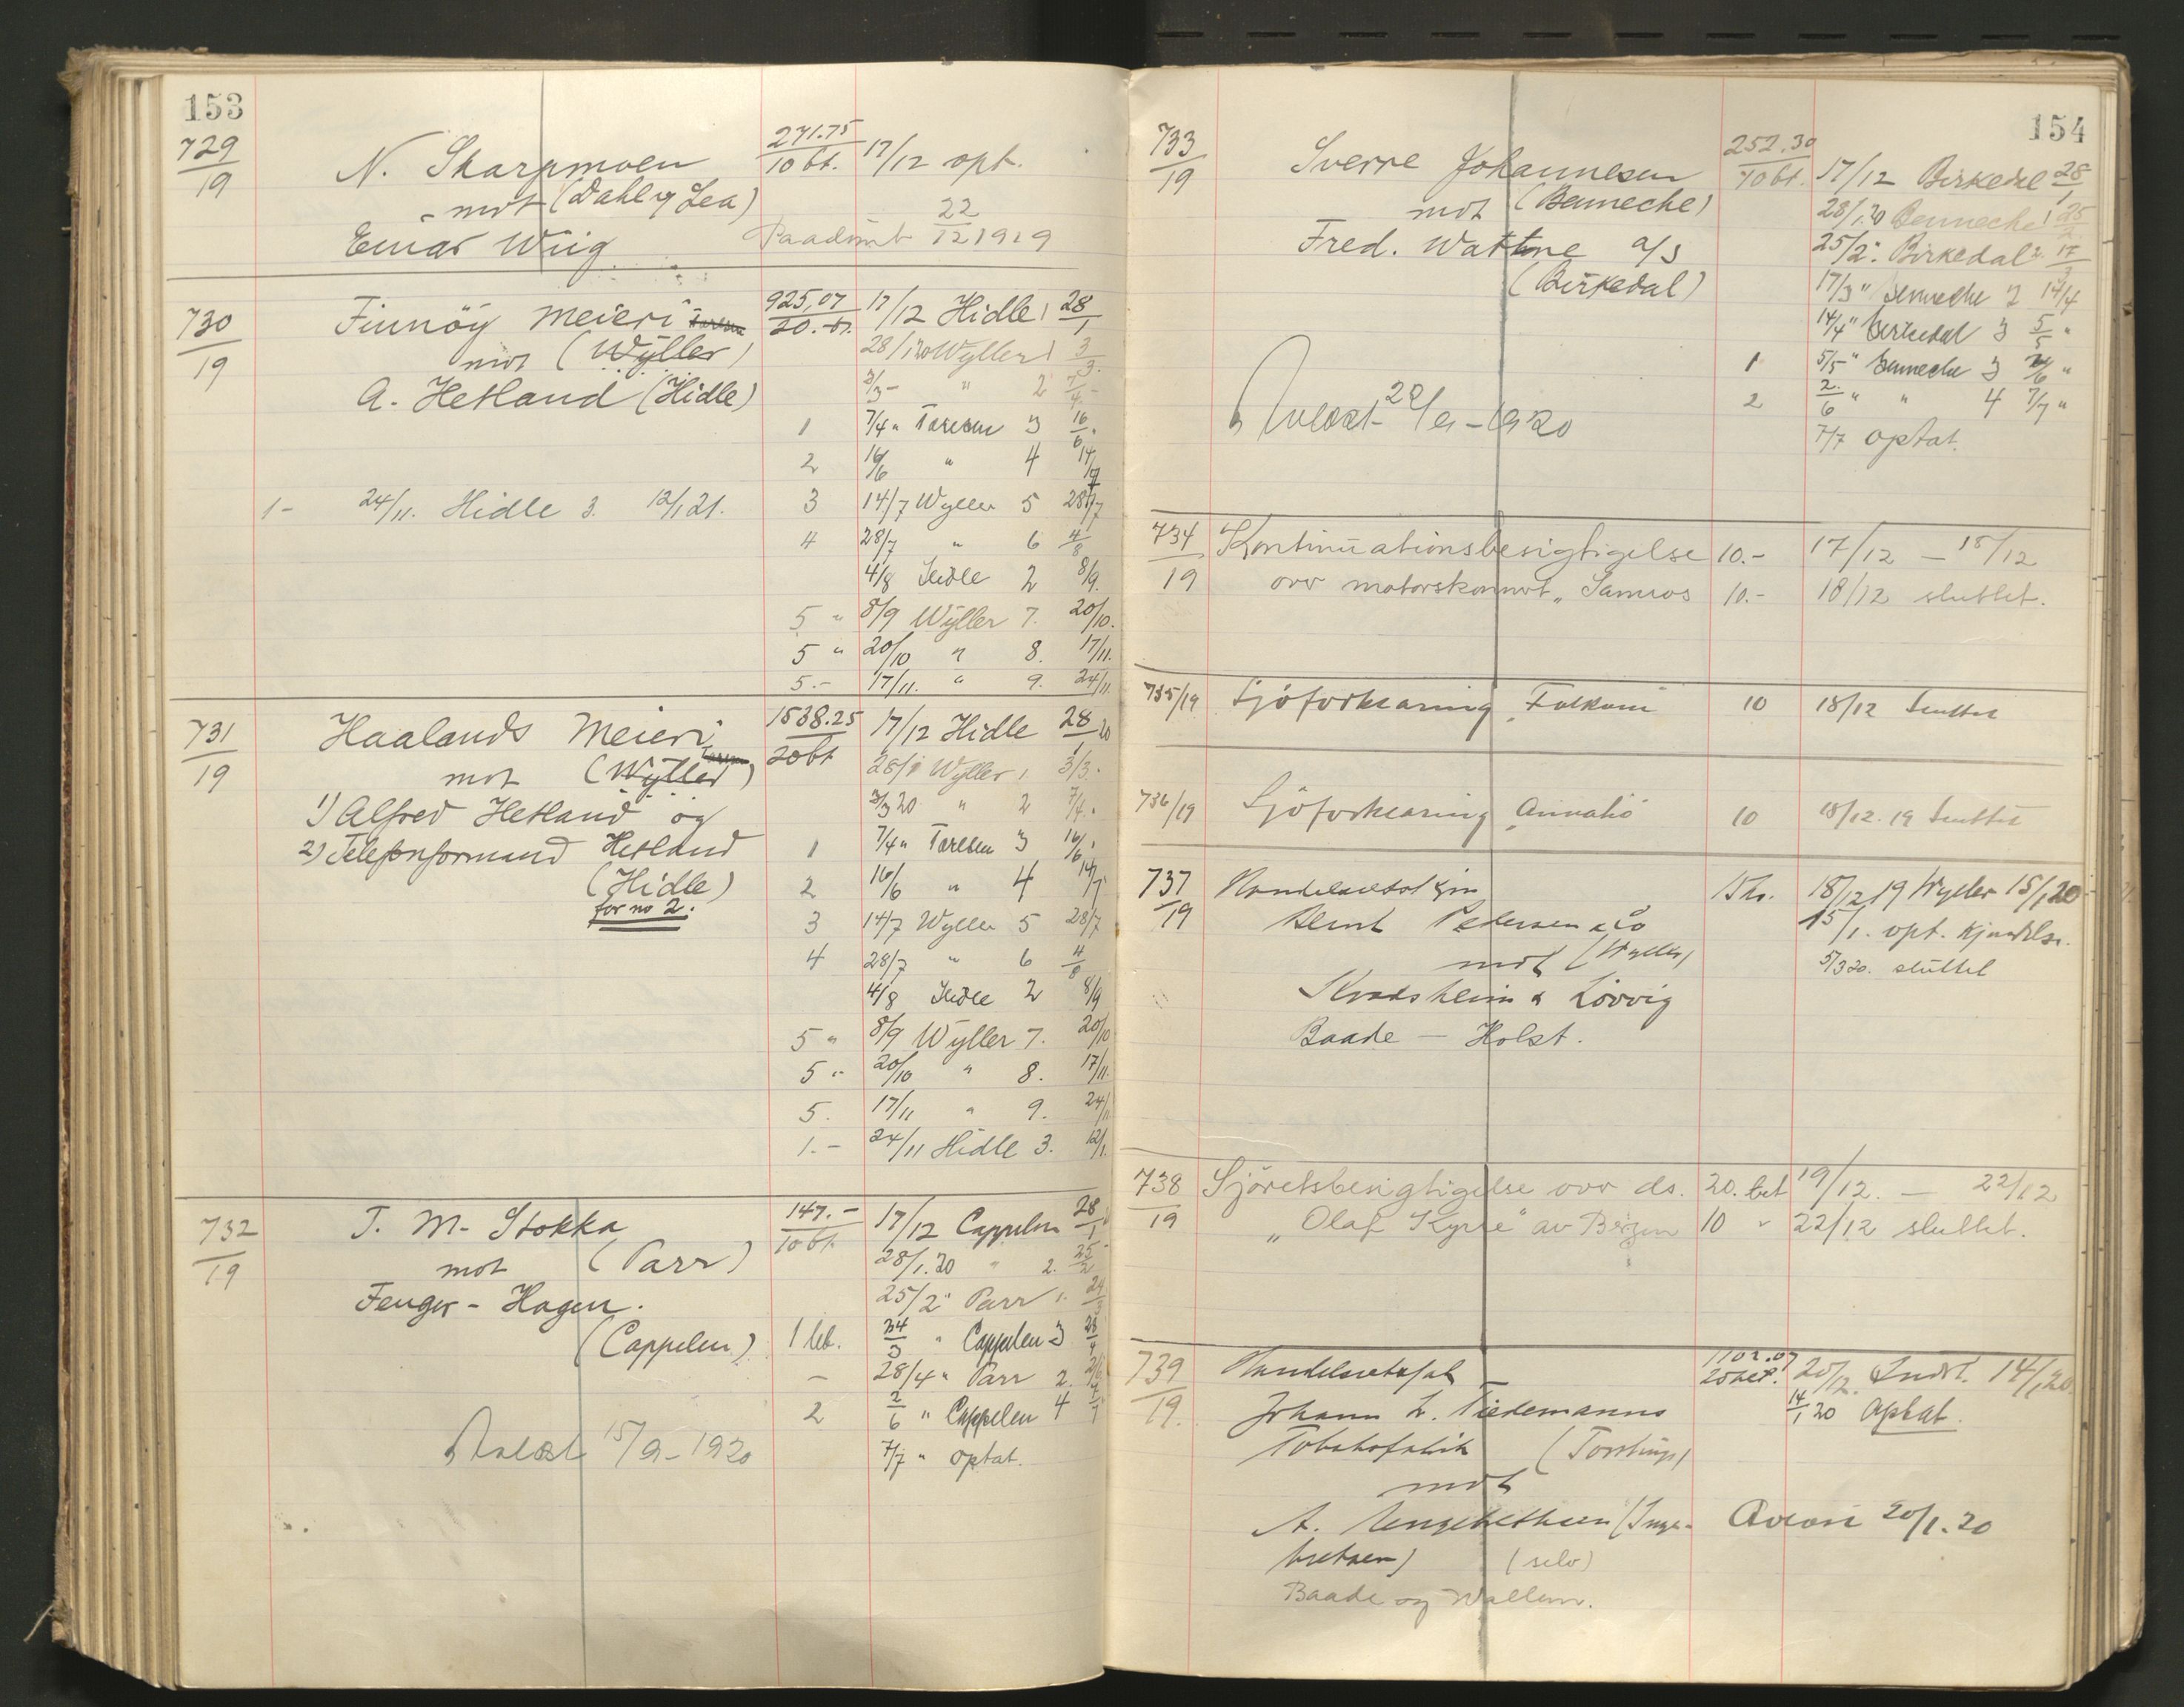 153
729/19 N. Skarpmoen 271.75/10 bt. 17/12 opt.
mot (Dahl og Lea)
Einar Wiig 22/12 1919
730/19 Finnöy Meieri 925,07/20.- bt. 17/12 Hidle 1 28/1
mot (Wyller) 28/1 20 Wyller 1 3/3.
A. Hetland (Hidle) 3/3 - " 2 7/4 -
1 7/4 " Tarldsen 3 16/6 "
2 16/6 " 4 14/7
1- 24/11. Hidle 3. 12/1 21. 3 14/7 Wyller 5 28/7
4 28/7 " 6 4/8
4/8 Hidle 2 8/9.
5 " 8/9 Wyller 7. 20/10.
5 " 20/10 " 8. 17/11.
5.- 17/11. " 9. 24/11
731/19 Haalands Meieri 1538.25/20 bt 17/12 Hidle 28/1 20
mot (Wyller) 28/1 Wyller 1 3/3.
1) Alfred Hetland og 3/3 20 " 2 7/4.
2) Telefonformand Hetland 1 7/4 " 3 16/6
(Hidle) 2 16/6 " 4 14/7
for no 2. 3 14/7 Wyller 5 28/7
4 28/7 " 6 4/8
4/8 Hidle 2 8/9
5 " 8/9 Wyller 7. 20/10
5 " 20/10 " 8. 17/11.
5. 17/11 " 9. 24/11
1.- 24/11 Hidle 3. 12/1.
732/19 T. M. Stokka 147.-/10 bt. 17/12 Cappelen 28/1
mot (Parr) 28/1.20 " 2. 25/2
Fenger-Hagen. 25/2 " Parr 1. 24/3
(Cappelen) 1 bt. 24/3 " Cappelen 3 28/4
- 28/4 " Parr 2. 2/6
2 2/6 " Cappelen 4 7/7
15/9-1920 7/7 " optat.
154
733/19 Sverre Johannesen 252.30/10 bt. 17/12 Birkedal 28/1
mot (Benneche) 28/1.20 Benneche 1 25/2
Fred. Wattne a/s 25/2 " Birkedal 2. 17/3
(Birkedal) 17/3 " Benneche 2 14/4
14/4 " Birkedal 3 5/5 "
1 5/5 " Benneche 3 2/6 "
2 2/6 " " 4 7/7 "
7/7 optat.
734/19 Kontinuationsbesigtigelse 10.- 17/12 - 18/12
over motorskonnert "Samros 10.- 18/12 sluttet.
735/19 Sjöforklaring 10 18/12 Sluttet
736/19 Sjöforklaring 10 18/12.19 Sluttet
737/19 18/12 19 Wyller 15/1 20
Bernt Pedersen & Co 15/1. opt. kjendelse.
mot (Wyller) 5/3 20. sluttet
Kvadsheim & Lövvig
Baade - Holst.
738/19 Sjöretsbesigtigelse over ds. 20. bet 19/12. - 22/12
"Olaf Kyrre" av Bergen 10 " 22/12 sluttet.
739/19. Handelsretssak 1102.07/20 bet. 20/12. Indst. 14/1 20.
Johann L. Tiedemanns 14/1 20 Optat.
Tobaksfabrik (Torstrup)
mot
A. (Inge-
bretsen) (selv) 20/1.20
Baade og Wallem.